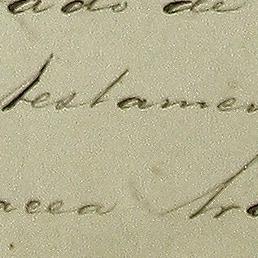 ado de
testamen
acea Ira